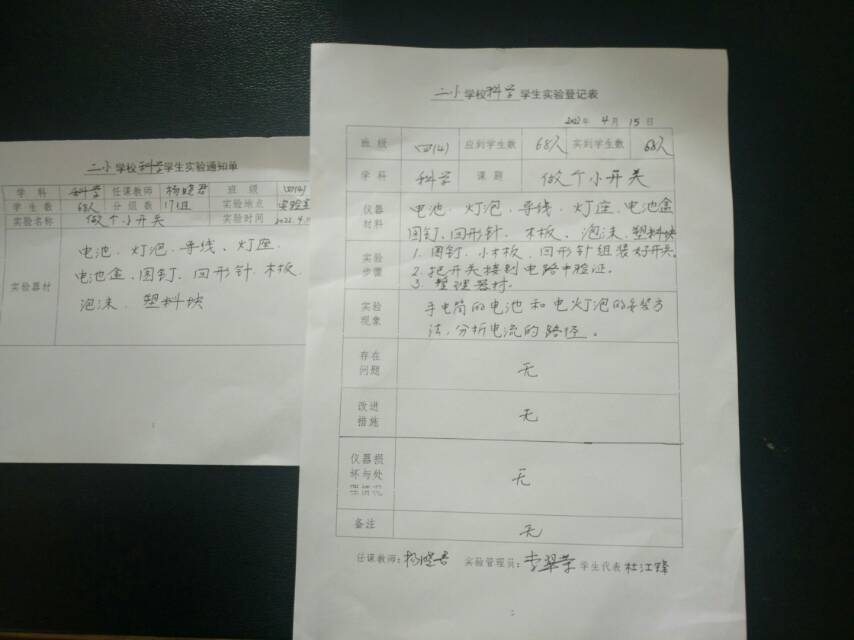 二小学校科学学生实验通知单
学科 科学 任课教师 杨晓君 班级 四(4)
学生数 68人 分组数 17组 实验地点 实验室
实验名称 做个小开关 实验时间 2022.4.
实验器材
电池、灯泡、导线、灯座、
电池盒、图钉、回形针、木板、
泡沫、塑料块
二小学校科学学生实验登记表
2022年 4月 15日
班级 四(4) 应到学生数 68人 实到学生数 68人
学科 科学 课题 做个小开关
仪器材料
电池、灯泡、导线、灯座、电池盒
图钉、回形针、木板、泡沫、塑料块
实验步骤
1. 图钉、小木板、回形针组装好开关。
2. 把开关接到电路中验证。
3. 整理器材。
实验现象
手电筒的电池和电灯泡的安装方
法,分析电流的路径。
存在问题
无
改进措施
无
仪器损坏与处理情况
无
备注
无
任课教师:杨晓君 实验管理员:李翠荣 学生代表 杜江锋